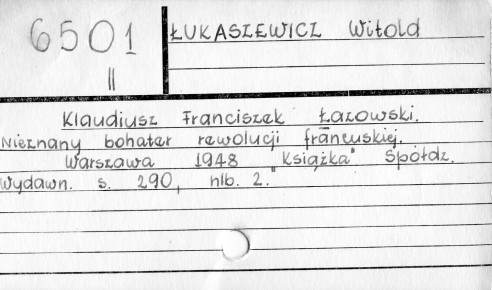 6501
II
ŁUKASZEWICZ Witold
Klaudiusz Franciszek Łazowski.
Nieznany bohater rewolucji francuskiej.
Warszawa 1948 "Książka" Spółdz.
Wydawn. s. 290, nlb. 2.